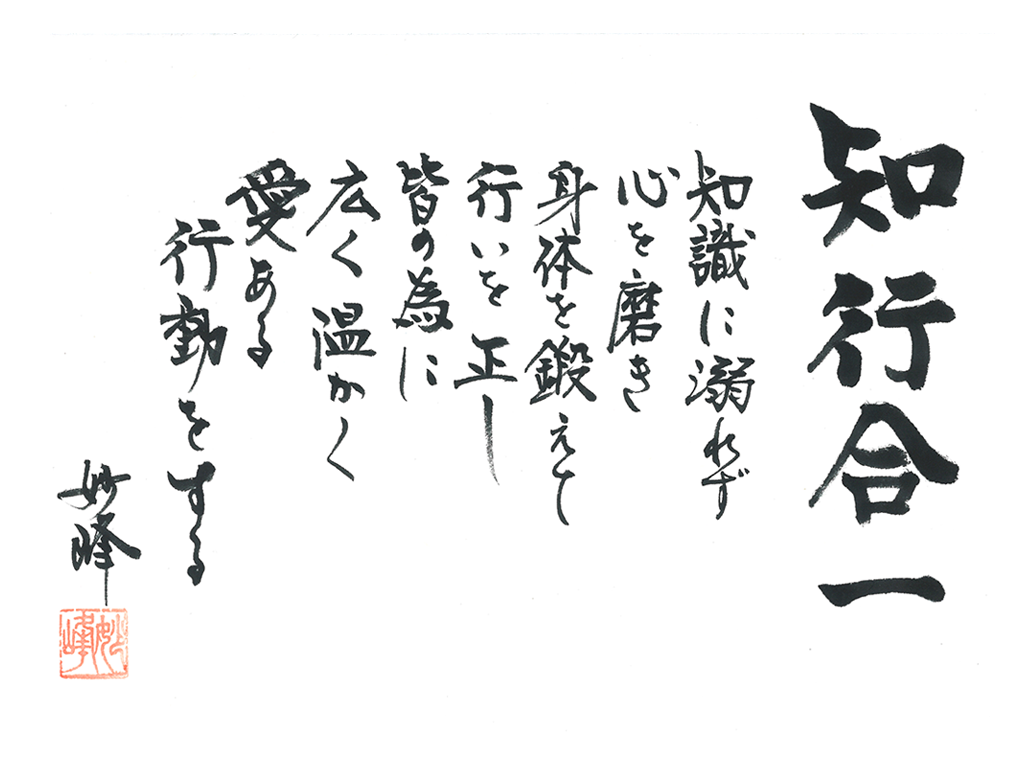 知行合一
知識に溺れず
心を磨き
身体を鍛えて
行いを正し
皆の為に
広く温かく
愛ある
行動をする
妙峰
妙峰